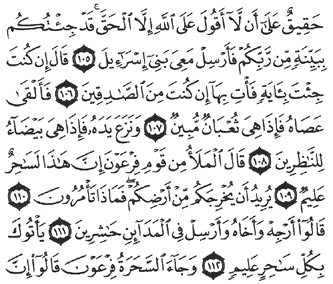 حَقِيقٌ عَلَىٰٓ أَن لَّآ أَقُولَ عَلَى ٱللَّهِ إِلَّا ٱلْحَقَّ ۚ قَدْ جِئْتُكُم
بِبَيِّنَةٍ مِّن رَّبِّكُمْ فَأَرْسِلْ مَعِىَ بَنِىٓ إِسْرَٰٓءِيلَ ١٠٥ قَالَ إِن كُنتَ
جِئْتَ بِـَٔايَةٍ فَأْتِ بِهَآ إِن كُنتَ مِنَ ٱلصَّـٰدِقِينَ ١٠٦ فَأَلْقَىٰ
عَصَاهُ فَإِذَا هِىَ ثُعْبَانٌ مُّبِينٌ ١٠٧ وَنَزَعَ يَدَهُۥ فَإِذَا هِىَ بَيْضَآءُ
لِلنَّـٰظِرِينَ ١٠٨ قَالَ ٱلْمَلَأُ مِن قَوْمِ فِرْعَوْنَ إِنَّ هَـٰذَا لَسَـٰحِرٌ
عَلِيمٌ ١٠٩ يُرِيدُ أَن يُخْرِجَكُم مِّنْ أَرْضِكُمْ ۖ فَمَاذَا تَأْمُرُونَ ١١٠
قَالُوٓا۟ أَرْجِهْ وَأَخَاهُ وَأَرْسِلْ فِى ٱلْمَدَآئِنِ حَـٰشِرِينَ ١١١ يَأْتُوكَ
بِكُلِّ سَـٰحِرٍ عَلِيمٍ ١١٢ وَجَآءَ ٱلسَّحَرَةُ فِرْعَوْنَ قَالُوٓا۟ إِنَّ